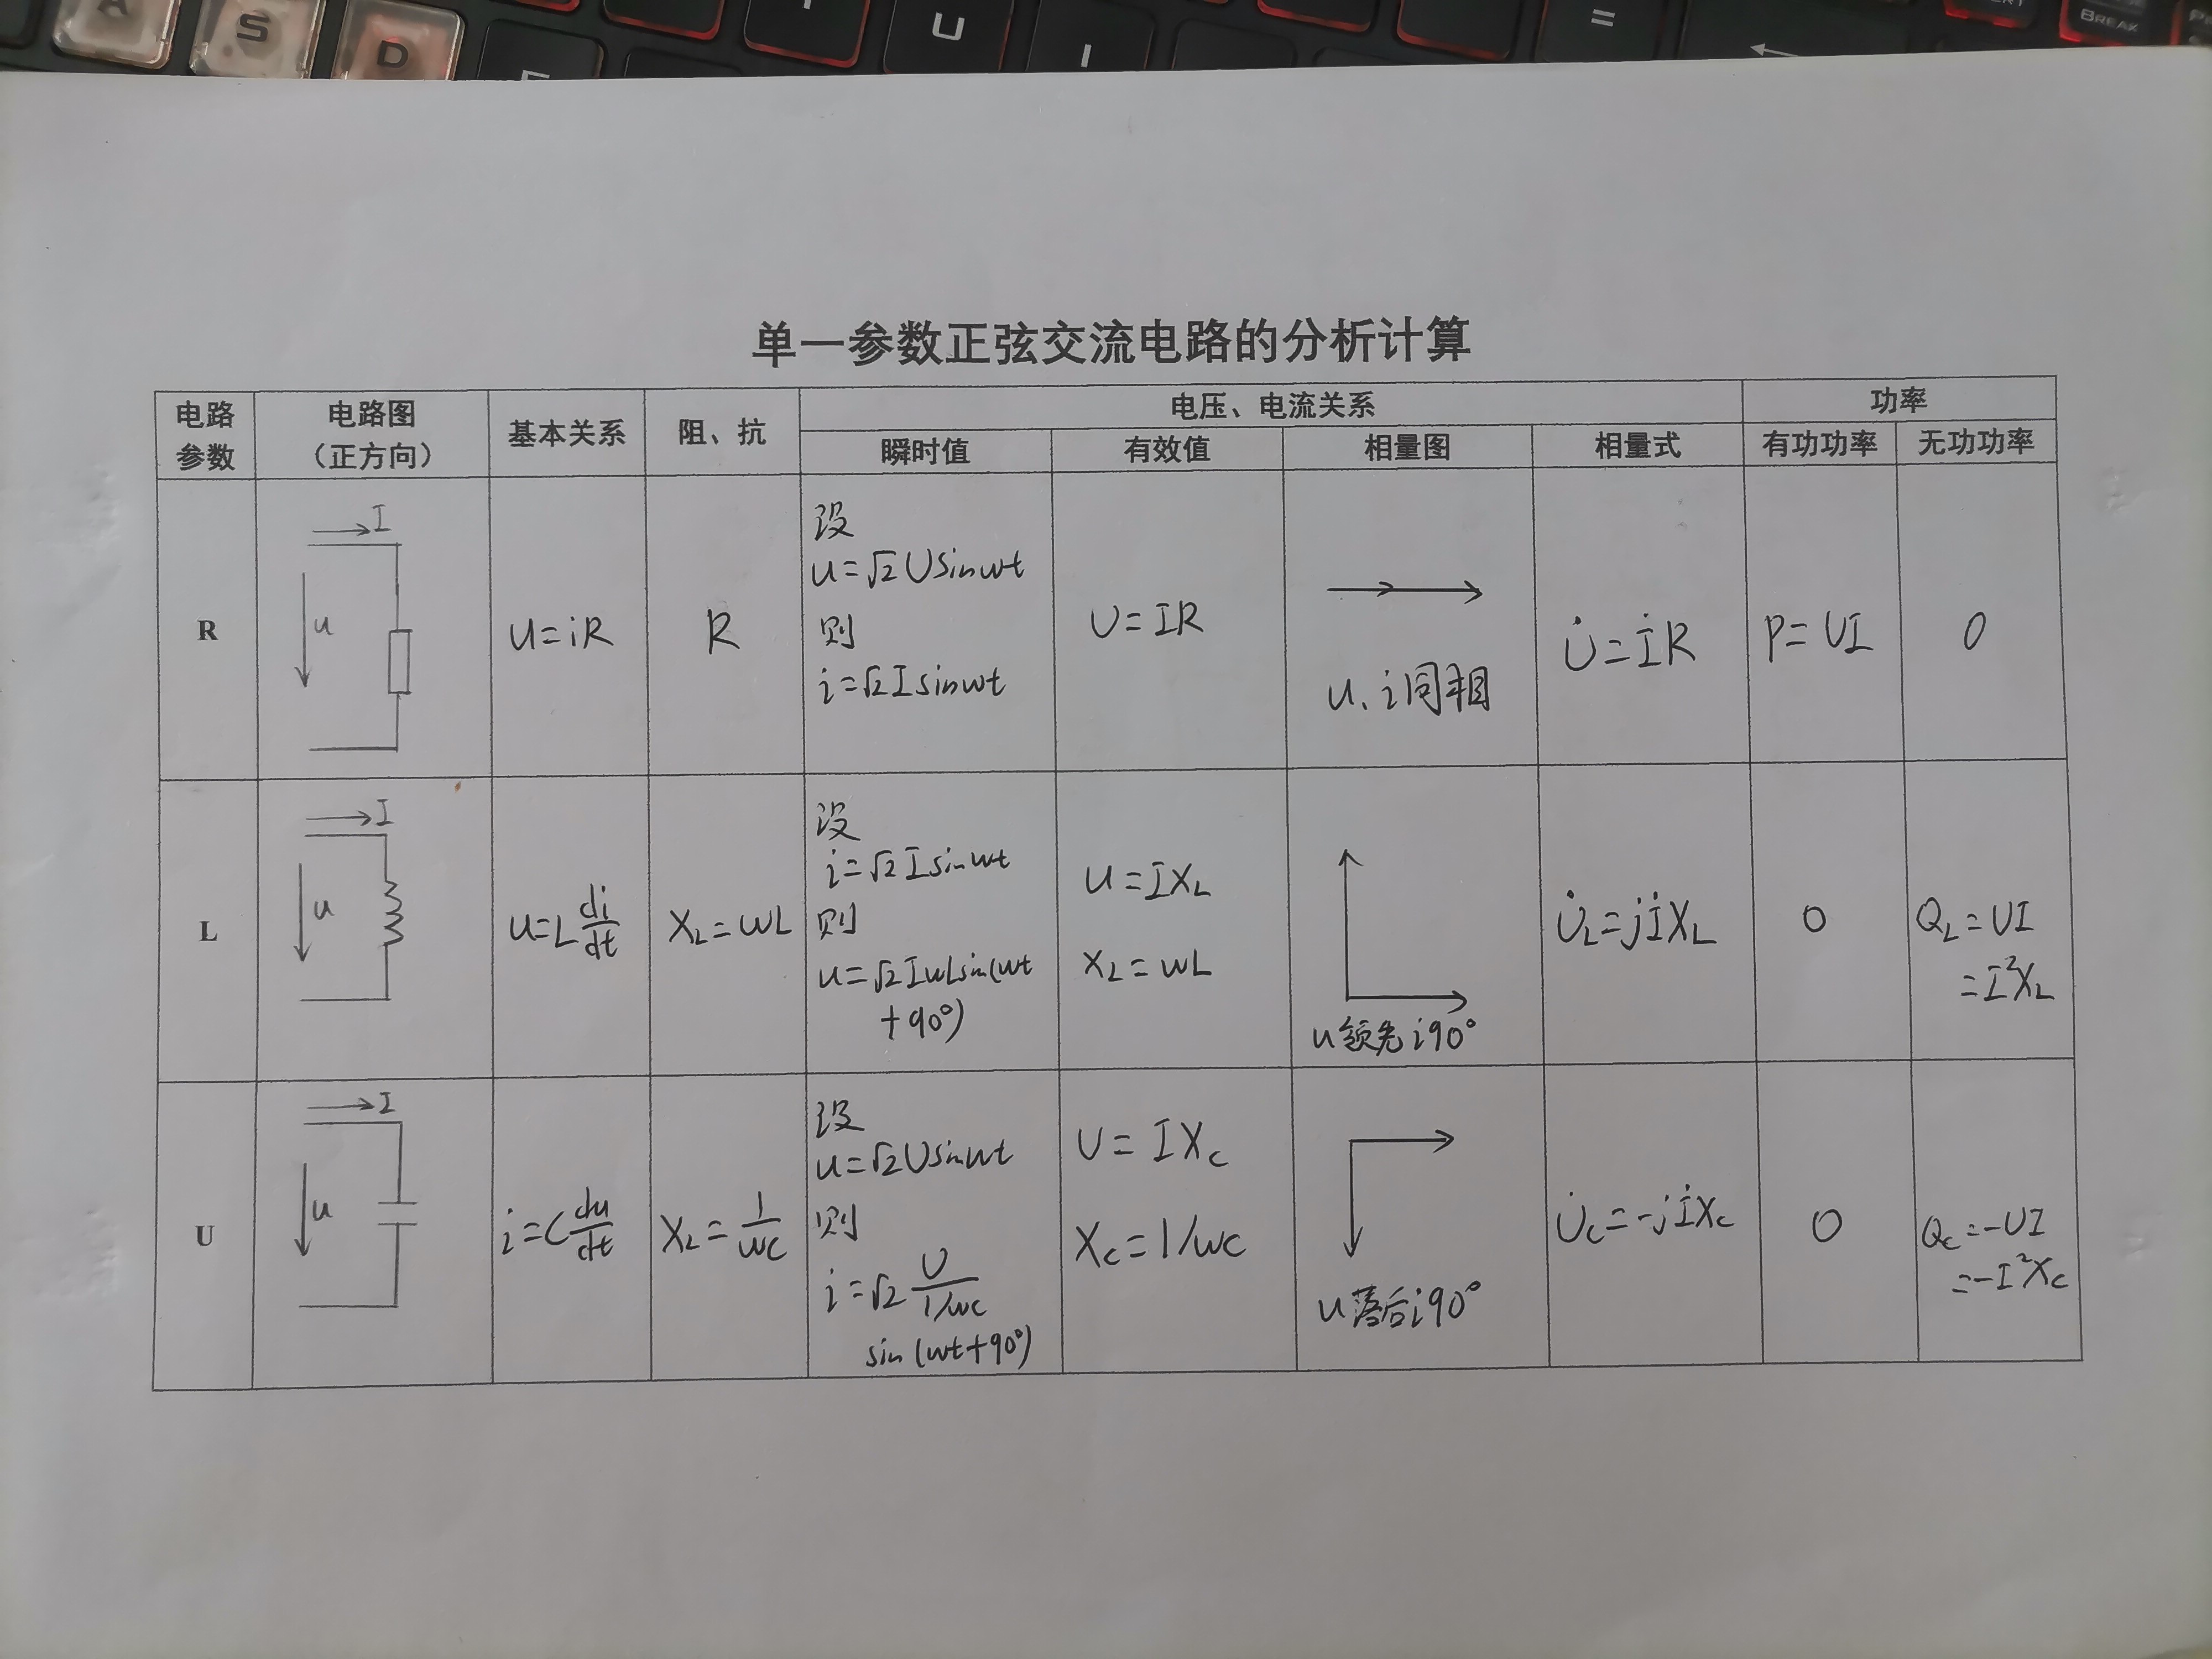 A S D U I = BREAK
单一参数正弦交流电路的分析计算
电路参数 电路图（正方向） 基本关系 阻、抗 电压、电流关系 功率
瞬时值 有效值 相量图 相量式 有功功率 无功功率
R
I
u
u=iR
R
设
u=√2Usinwt
则
i=√2Isinwt
U=IR
u、i同相
U̇=İR
P=UI
0
L
I
u
u=L di/dt
X_L=wL
设
i=√2Isinwt
则
u=√2IwLsin(wt
+90°)
u=IX_L
X_L=wL
u领先i90°
U̇_L=jİX_L
0
Q_L=UI
=I²X_L
U
I
u
i=C du/dt
X_L=1/wc
设
u=√2Usinwt
则
i=√2 U/(1/wc)
sin(wt+90°)
U=IX_C
X_C=1/wc
u落后i90°
U̇_C=-jİX_C
0
Q_C=-UI
=-I²X_C